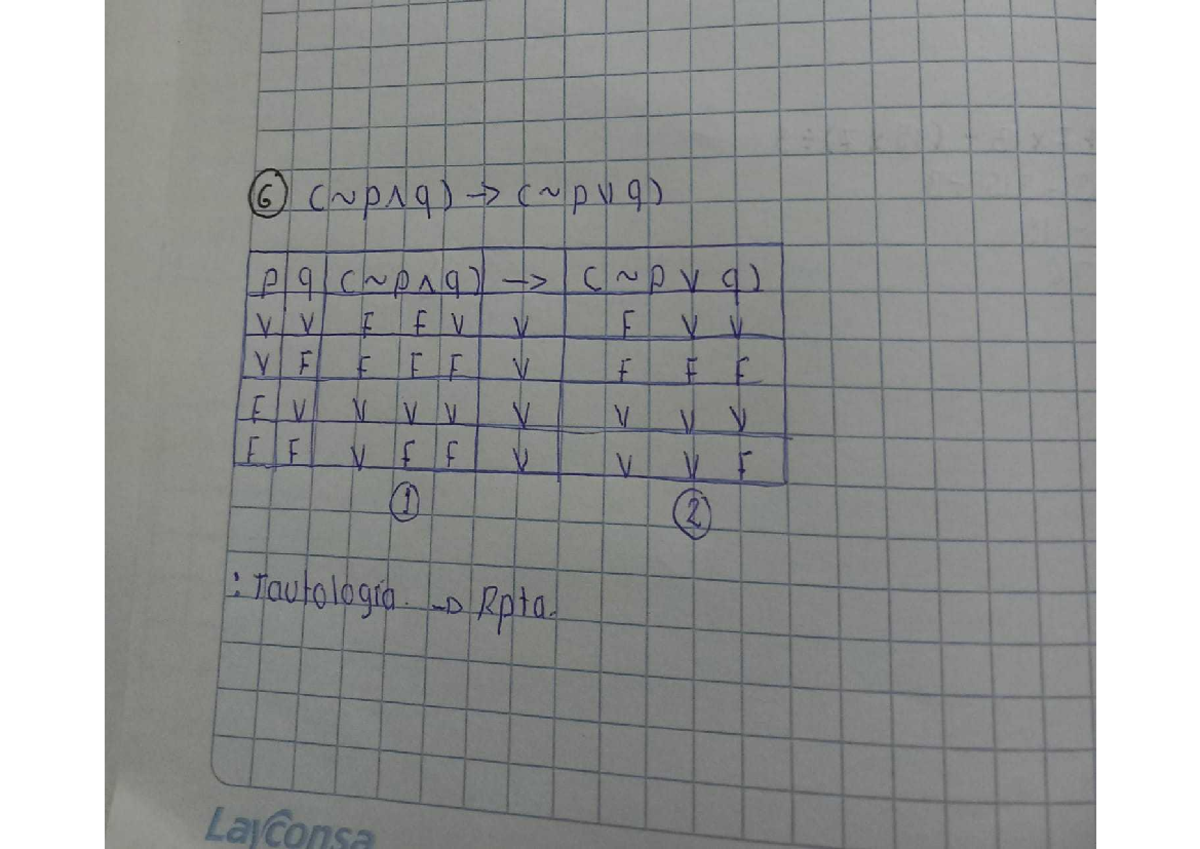 6 (~p∧q) → (~p∨q)
p q (~p∧q) → (~p ∨ q)
V V F F V V F V V
V F F F F V F F F
F V V V V V V V V
F F V F F V V V F
1 2
: Tautología. → Rpta.
Layconsa